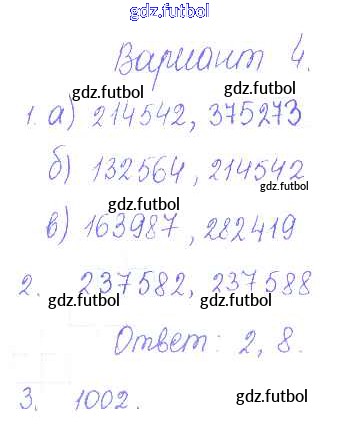 gdz.futbol
gdz.futbol
Вариант 4.
gdz.futbol
gdz.futbol
1. а) 214542, 375273
б) 132564, 214542
gdz.futbol
gdz.futbol
в) 163987, 282419
2. 237582, 237588
gdz.futbol
gdz.futbol
Ответ: 2, 8.
gdz.futbol
3. 1002.